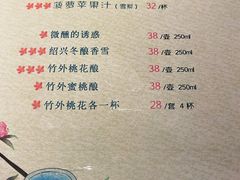 菠萝苹果汁（雪梨） 32/杯
微醺的诱惑 38/壶 250ml
绍兴冬酿香雪 38/壶 250ml
竹外桃花酿 38/壶 250ml
竹外蜜桃酿 38/壶 250ml
竹外桃花各一杯 28/套 4杯